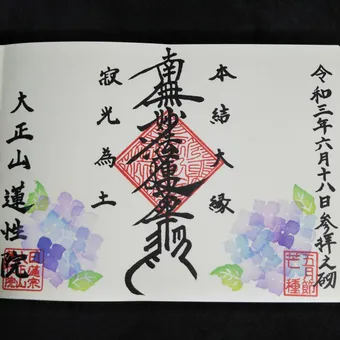 令和三年六月十八日参拝之砌
本結大縁
南無妙法蓮華経
寂光為土
大正山 蓮性院
五月節
芒種